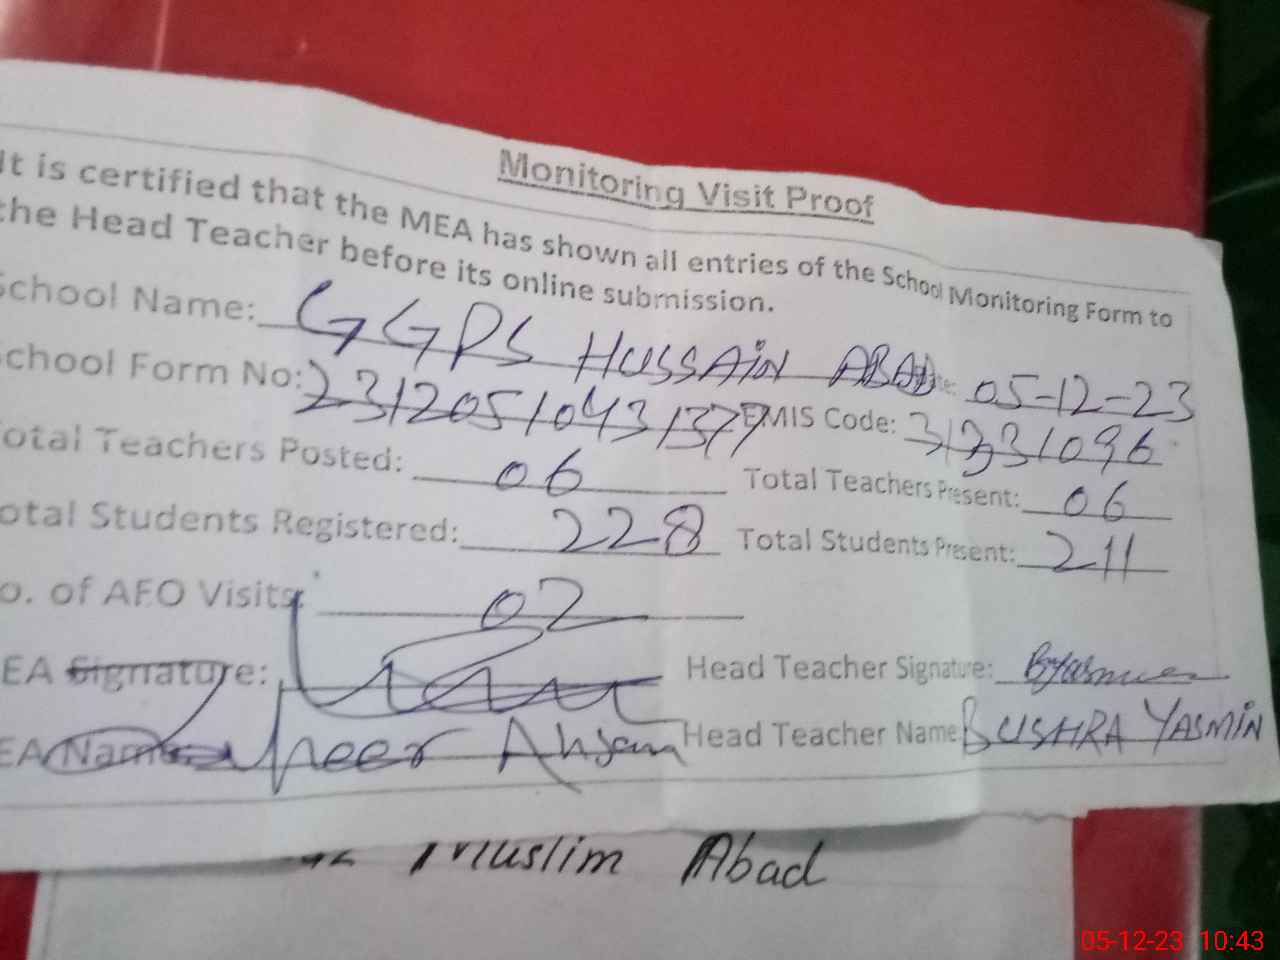 Monitoring Visit Proof
It is certified that the MEA has shown all entries of the School Monitoring Form to
the Head Teacher before its online submission.
School Name: GGPS HUSSAiN ABAD 05-12-23
School Form No: 23120510431377 EMIS Code: 31231096
Total Teachers Posted: 06 Total Teachers Present: 06
Total Students Registered: 228 Total Students Present: 211
o. of AEO Visits: 02
EA Signature: Head Teacher Signature:
EA Name Ahsan Head Teacher Name BUSHRA YASMiN
Muslim Abad
05-12-23 10:43